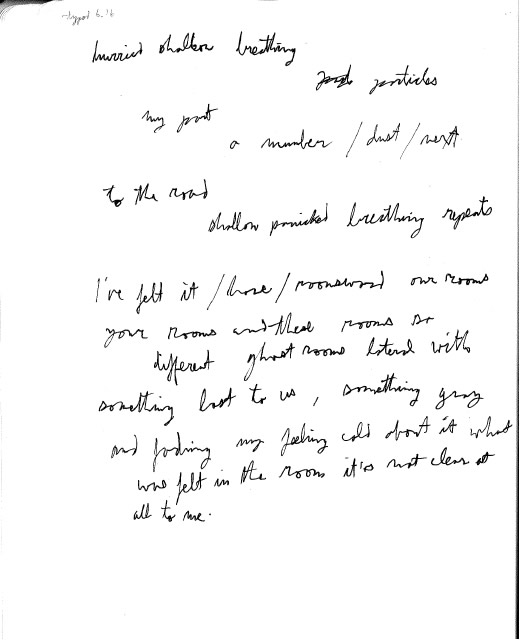 typed 6.16
hurried shallow breathing
particles
my part
a number / dust / next
to the road
shallow panicked breathing repeats
I've felt it / those / roomsward our rooms
your rooms and these rooms so
different ghost rooms lateral with
something lost to us, something gray
and fading my feeling cold about it what
was felt in the room it's not clear at
all to me.